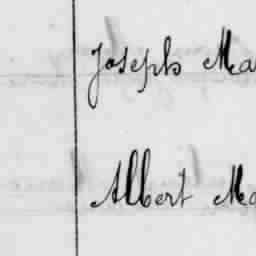 Joseph Ma
Albert Ma